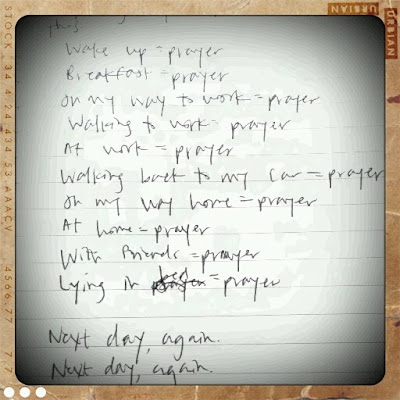 Wake up = prayer
Breakfast = prayer
On my way to work = prayer
Walking to work = prayer
At work = prayer
Walking back to my car = prayer
On my way home = prayer
At home = prayer
With Friends = prayer
Lying in bed = prayer
Next day, again.
Next day, again.
URBIAN
URBIAN